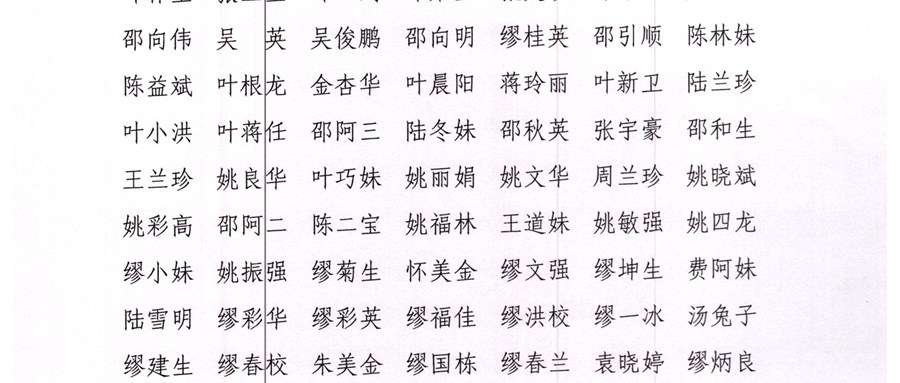 邵向伟 吴 英 吴俊鹏 邵向明 缪桂英 邵引顺 陈林妹
陈益斌 叶根龙 金杏华 叶晨阳 蒋玲丽 叶新卫 陆兰珍
叶小洪 叶蒋任 邵阿三 陆冬妹 邵秋英 张宇豪 邵和生
王兰珍 姚良华 叶巧妹 姚丽娟 姚文华 周兰珍 姚晓斌
姚彩高 邵阿二 陈二宝 姚福林 王道妹 姚敏强 姚四龙
缪小妹 姚振强 缪菊生 怀美金 缪文强 缪坤生 费阿妹
陆雪明 缪彩华 缪彩英 缪福佳 缪洪校 缪一冰 汤兔子
缪建生 缪春校 朱美金 缪国栋 缪春兰 袁晓婷 缪炳良